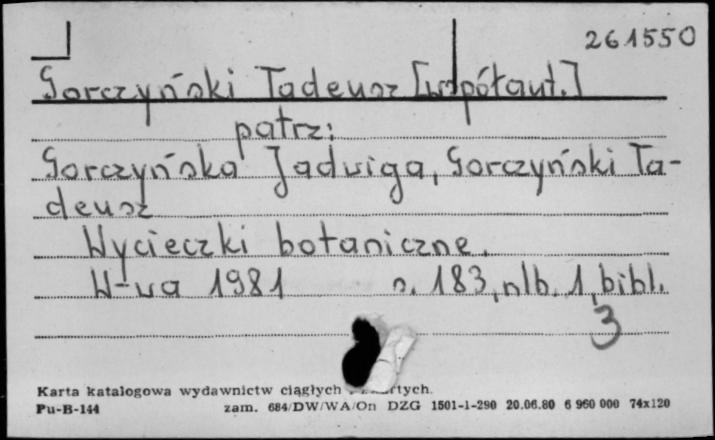 261550
Gorczyński Tadeusz [współaut.]
patrz:
Gorczyńska Jadwiga, Gorczyński Ta-
deusz
Wycieczki botaniczne.
W-wa 1981 s. 183, nlb. 1, bibl.
3
Karta katalogowa wydawnictw ciągłych
Pu-B-144 zam. 684/DW/WA/On DZG 1501-1-290 20.06.80 6 960 000 74x120